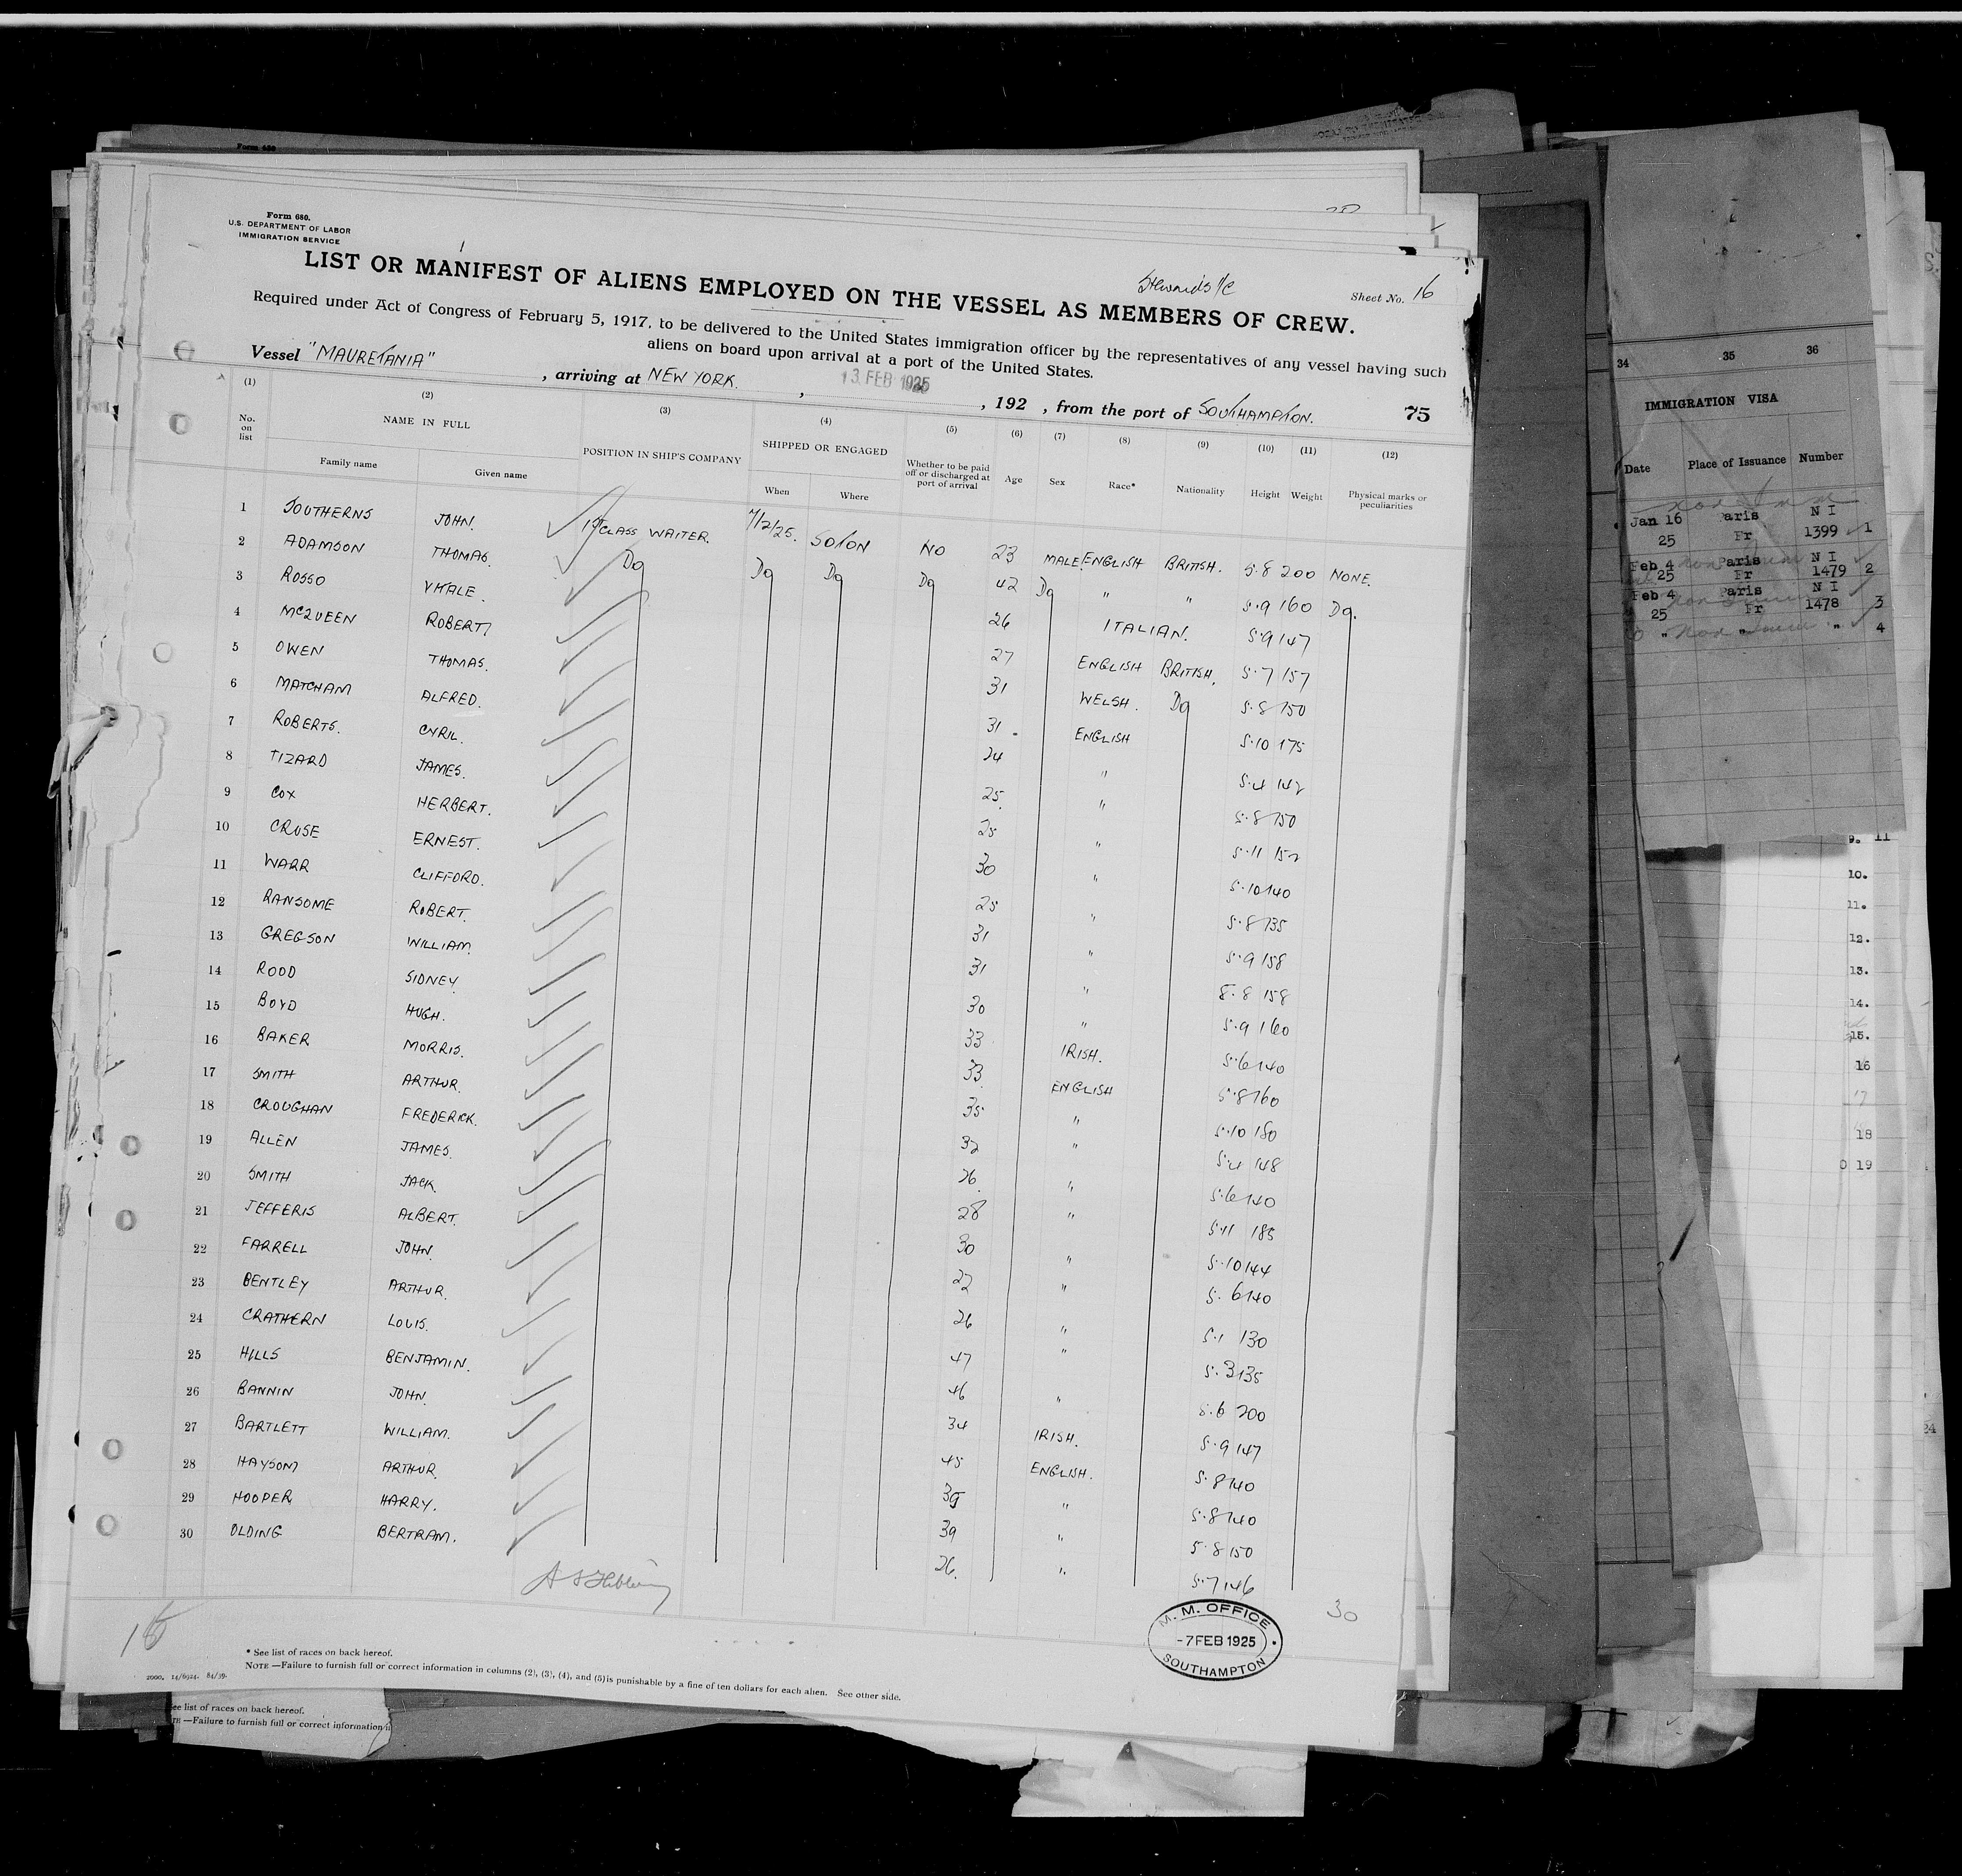 Form 680.
U.S. DEPARTMENT OF LABOR
IMMIGRATION SERVICE
Stewards
Sheet No. 16
LIST OR MANIFEST OF ALIENS EMPLOYED ON THE VESSEL AS MEMBERS OF CREW.
Required under Act of Congress of February 5, 1917, to be delivered to the United States immigration officer by the representatives of any vessel having such
aliens on board upon arrival at a port of the United States.
Vessel "MAURETANIA", arriving at NEW YORK. , 13 FEB 1925, 192 , from the port of SOUTHAMPTON. 75
(1) (2) (3) (4) (5) (6) (7) (8) (9) (10) (11) (12)
No. on list NAME IN FULL POSITION IN SHIP'S COMPANY SHIPPED OR ENGAGED Whether to be paid off or discharged at port of arrival Age Sex Race* Nationality Height Weight Physical marks or peculiarities
Family name Given name When Where
1 SOUTHERNS JOHN. 1st CLASS WAITER. 7/2/25. SOTON NO 23 MALE ENGLISH BRITISH. 5.8 200 NONE.
2 ADAMSON THOMAS. Do Do Do Do 42 Do " " 5.9 160 Do.
3 ROSSO VITALE. 26 ITALIAN. 5.9 147
4 MCQUEEN ROBERT 27 ENGLISH BRITISH. 5.7 157
5 OWEN THOMAS. 31 WELSH. Do 5.8 150
6 MATCHAM ALFRED. 31 ENGLISH 5.10 175
7 ROBERTS. CYRIL. 24 " 5.4 142
8 TIZARD JAMES. 25. " 5.8 150
9 COX HERBERT. 25 " 5.11 152
10 CRUSE ERNEST. 30 " 5.10 140
11 WARR CLIFFORD. 25 " 5.8 135
12 RANSOME ROBERT. 31 " 5.9 158
13 GREGSON WILLIAM. 31 " 5.8 158
14 ROOD SIDNEY 30 " 5.9 160
15 BOYD HUGH. 33 IRISH. 5.6 140
16 BAKER MORRIS. 33 ENGLISH 5.8 160
17 SMITH ARTHUR. 35 " 5.10 180
18 CROUGHAN FREDERICK. 32 " 5.4 148
19 ALLEN JAMES. 26. " 5.6 140
20 SMITH JACK. 28 " 5.11 185
21 JEFFERIS ALBERT. 30 " 5.10 144
22 FARRELL JOHN. 22 " 5.6 140
23 BENTLEY ARTHUR. 26 " 5.1 130
24 CRATHERN LOUIS. 47 " 5.3 135
25 HILLS BENJAMIN. 46 " 5.6 200
26 BANNIN JOHN. 34 IRISH. 5.9 147
27 BARTLETT WILLIAM. 45 ENGLISH. 5.8 140
28 HAYSOM ARTHUR. 35 " 5.8 140
29 HOOPER HARRY. 39 " 5.8 150
30 OLDING BERTRAM. 26. " 5.7 146
30
M. M. OFFICE
-7 FEB 1925
SOUTHAMPTON
* See list of races on back hereof.
NOTE —Failure to furnish full or correct information in columns (2), (3), (4), and (5) is punishable by a fine of ten dollars for each alien. See other side.
2000. 14/6924. 84/39.
ee list of races on back hereof.
TE —Failure to furnish full or correct information
34 35 36
IMMIGRATION VISA
Date Place of Issuance Number
Jan 16 Paris N I
25 Fr 1399 1
Feb 4 Paris N I
25 Fr 1479 2
Feb 4 Paris N I
25 Fr 1478 3
" " " 4
9. 11
10.
11.
12.
13.
14.
15.
16
17
18
19
24